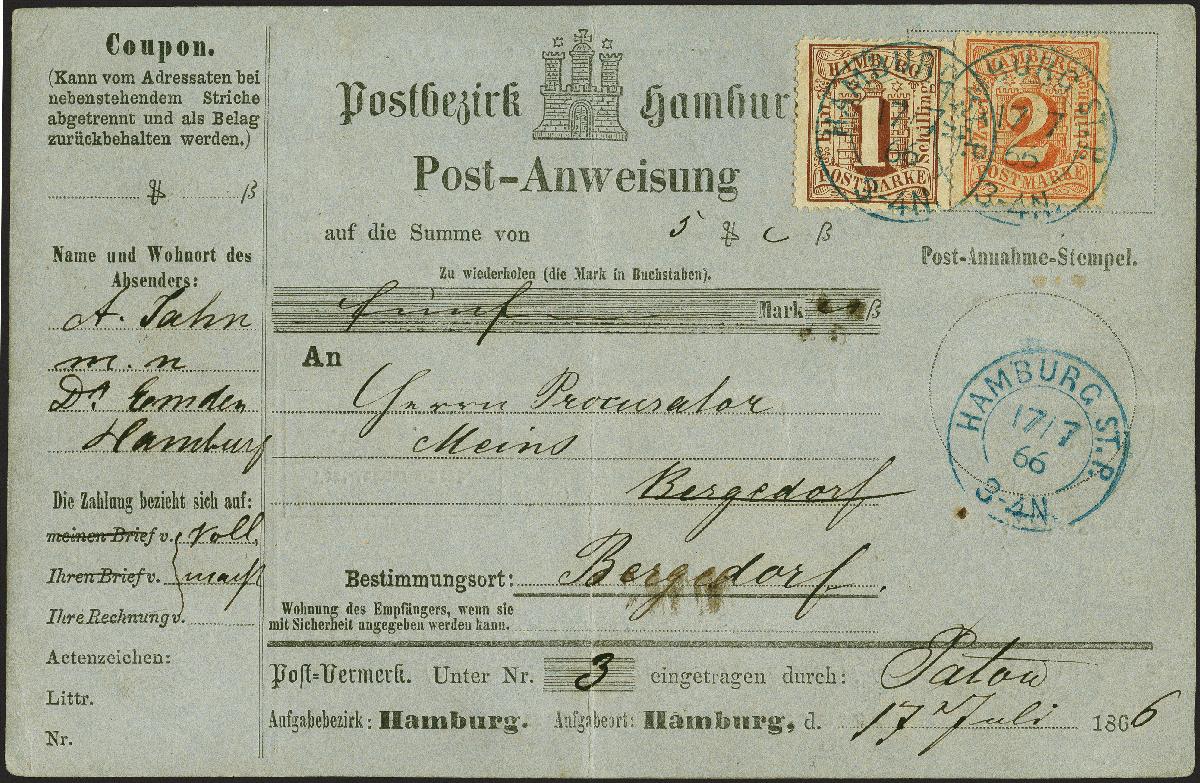 Coupon.
(Kann vom Adressaten bei
nebenstehendem Striche
abgetrennt und als Belag
zurückbehalten werden.)
ß
Name und Wohnort des
Absenders:
A. Jahn
m. n
Dr. Emden
Hamburg
Die Zahlung bezieht sich auf:
meinen Brief v. Voll,
Ihren Brief v. macht
Ihre Rechnung v.
Actenzeichen:
Littr.
Nr.
Postbezirk Hambur
Post-Anweisung
auf die Summe von 5 ß
Zu wiederholen (die Mark in Buchstaben).
fünf Mark ß
An
Herrn Procurator
Meins
Bergedorf
Bestimmungsort: Bergedorf.
Wohnung des Empfängers, wenn sie
mit Sicherheit angegeben werden kann.
Post-Vermerk. Unter Nr. 3 eingetragen durch:
Aufgabebezirk: Hamburg. Aufgabeort: Hamburg, d. 17 Juli 1866
HAMBURG
1
Schilling
POSTMARKE
HAMBURG
2
POSTMARKE
HAMBURG ST. P.
17 7
66
3-4N.
HAMBURG ST. P.
17 7
66
3-4N.
Post-Annahme-Stempel.
HAMBURG ST. P.
17/7
66
3-4N.